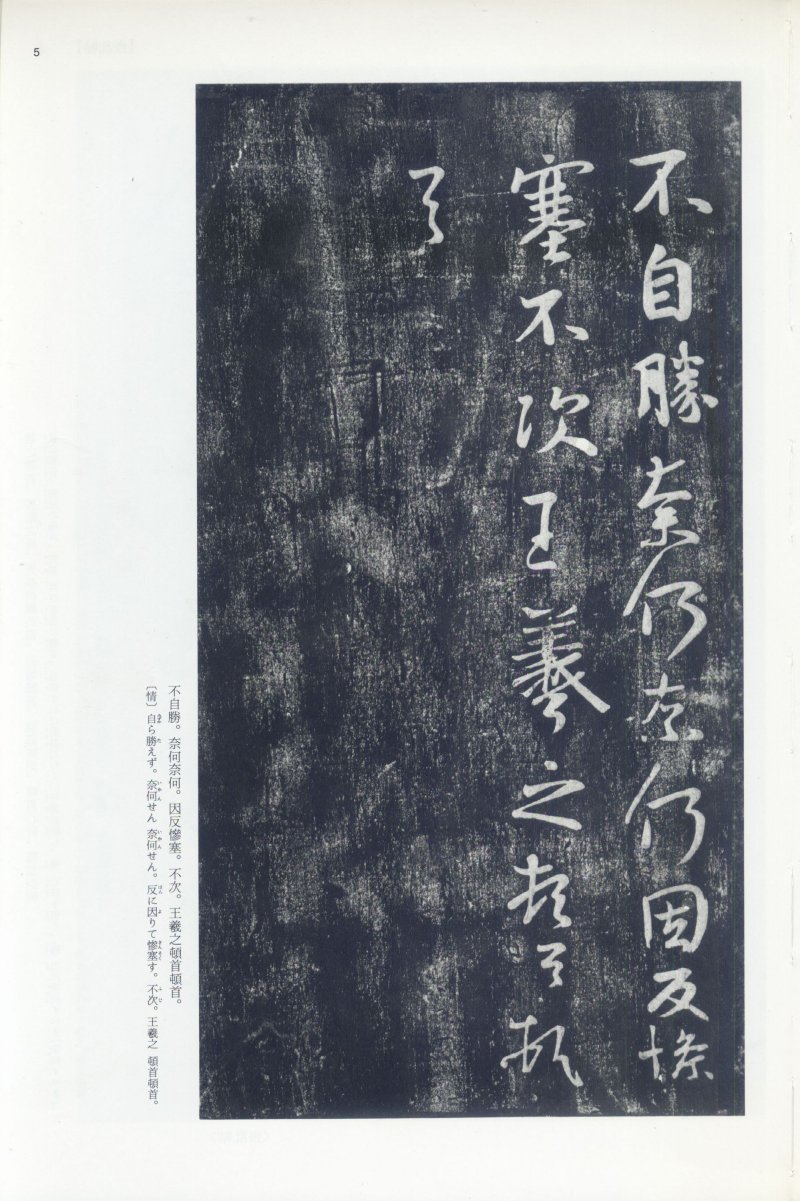 5
不自勝奈何奈何因反慘
塞不次王羲之頓首頓
首
不自勝。奈何奈何。因反慘塞。不次。王羲之頓首頓首。
〔情〕自ら勝えず。奈何せん 奈何せん。反に因りて慘塞す。不次。王羲之 頓首頓首。